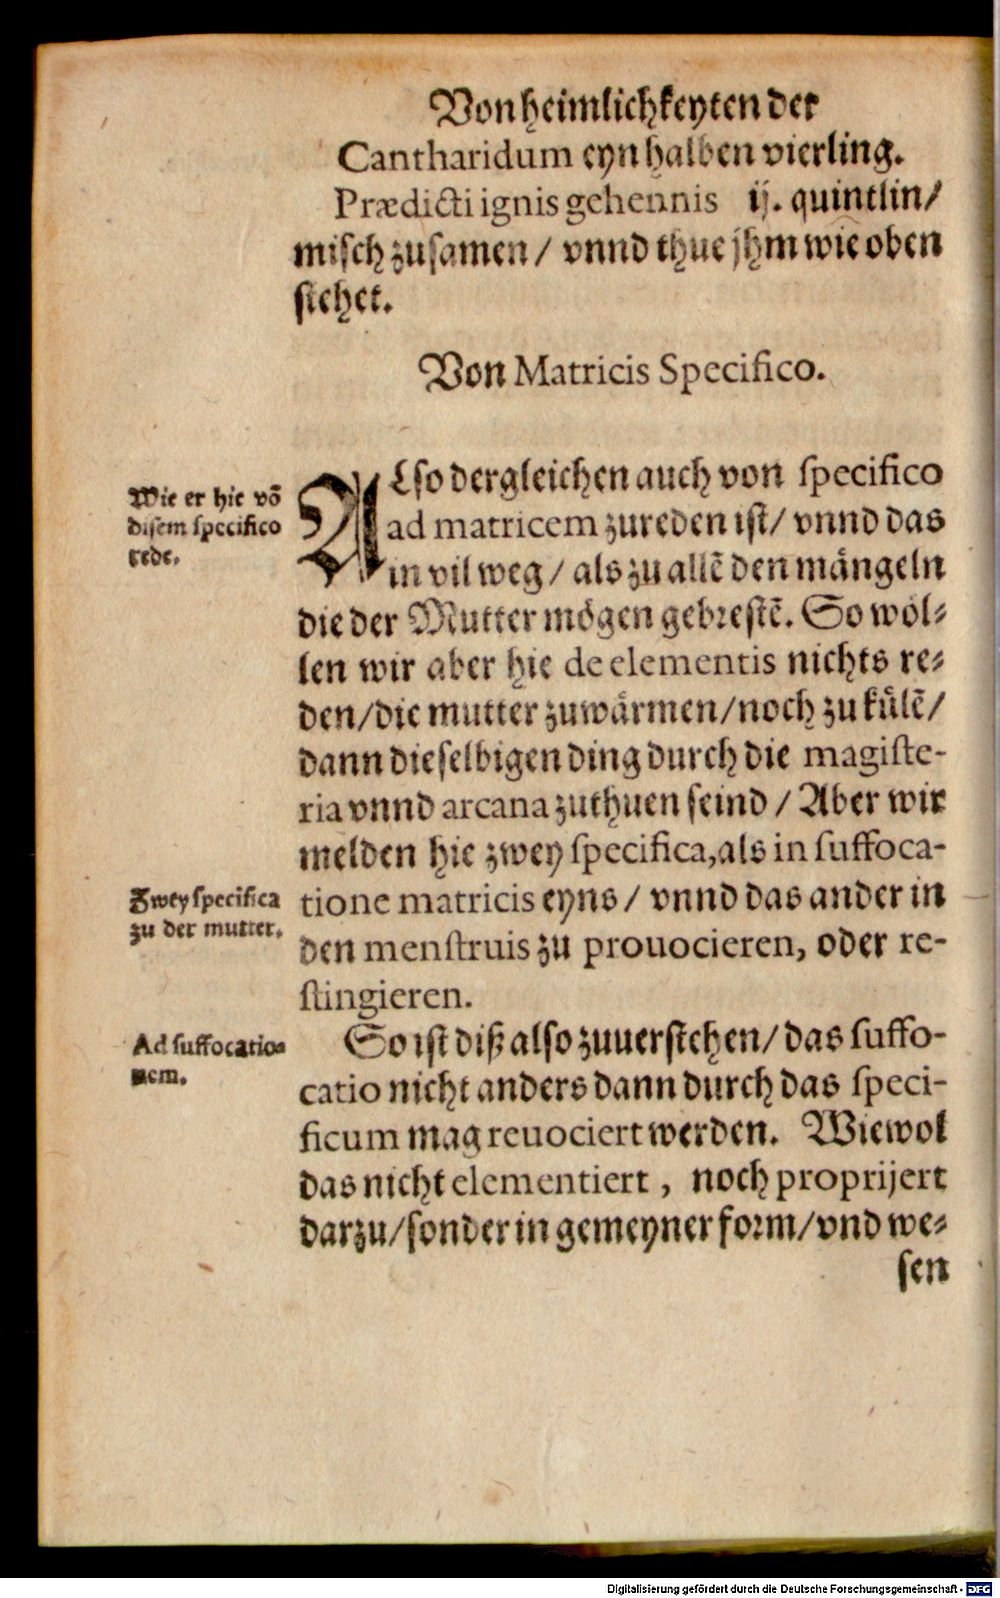 Von heimlichkeyten der
Cantharidum eyn halben vierling.
Prædicti ignis gehennis ij. quintlin/
misch zusamen / vnnd thue jhm wie oben
stehet.
Von Matricis Specifico.
Wie er hie võ
disem specifico
rede.
ALso dergleichen auch von specifico
ad matricem zureden ist/ vnnd das
in vil weg / als zu allẽ den mängeln
die der Mutter mögen gebrestẽ. So wöl-
len wir aber hie de elementis nichts re-
den/die mutter zuwärmen/noch zu külẽ/
dann dieselbigen ding durch die magiste-
ria vnnd arcana zuthuen seind / Aber wir
melden hie zwey specifica,als in suffoca-
Zwey specifica
zu der mutter.
tione matricis eyns / vnnd das ander in
den menstruis zu prouocieren, oder re-
stingieren.
Ad suffocatio-
nem.
So ist diß also zuuerstehen/ das suffo-
catio nicht anders dann durch das speci-
ficum mag reuociert werden. Wiewol
das nicht elementiert , noch proprijert
darzu/sonder in gemeyner form/vnd we-
sen
Digitalisierung gefördert durch die Deutsche Forschungsgemeinschaft - DFG